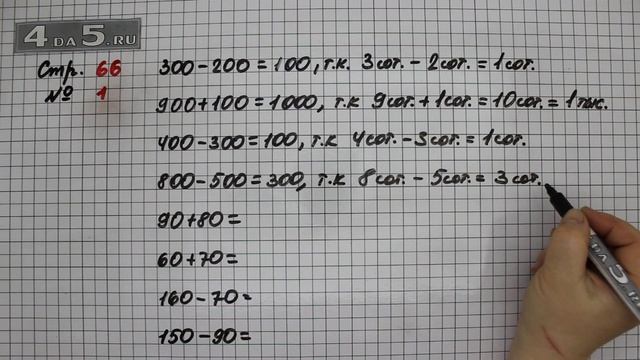 4 DA 5.RU
Стр. 66
№ 1
300 - 200 = 100, т.к. 3 сот. - 2 сот. = 1 сот.
900 + 100 = 1000, т.к 9 сот. + 1 сот. = 10 сот. = 1 тыс.
400 - 300 = 100, т.к 4 сот. - 3 сот. = 1 сот.
800 - 500 = 300, т.к 8 сот. - 5 сот. = 3 сот.
90 + 80 =
60 + 70 =
160 - 70 =
150 - 90 =